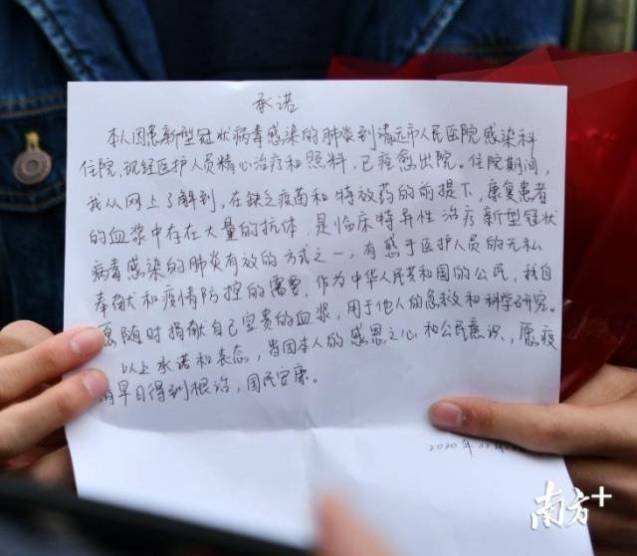 承诺
本人因患新型冠状病毒感染的肺炎到清远市人民医院感染科
住院,现经医护人员精心治疗和照料,已痊愈出院。住院期间,
我从网上了解到,在缺乏疫苗和特效药的前提下,康复患者
的血浆中存在大量的抗体,是临床特异性治疗新型冠状
病毒感染的肺炎有效的方式之一,有感于医护人员的无私
奉献和疫情防控的需要,作为中华人民共和国的公民,我自
愿随时捐献自己宝贵的血浆,用于他人的急救和科学研究。
以上承诺和表态,皆因本人的感恩之心和公民意识,愿疫
早日得到根治,国民安康。
2020年
南方+